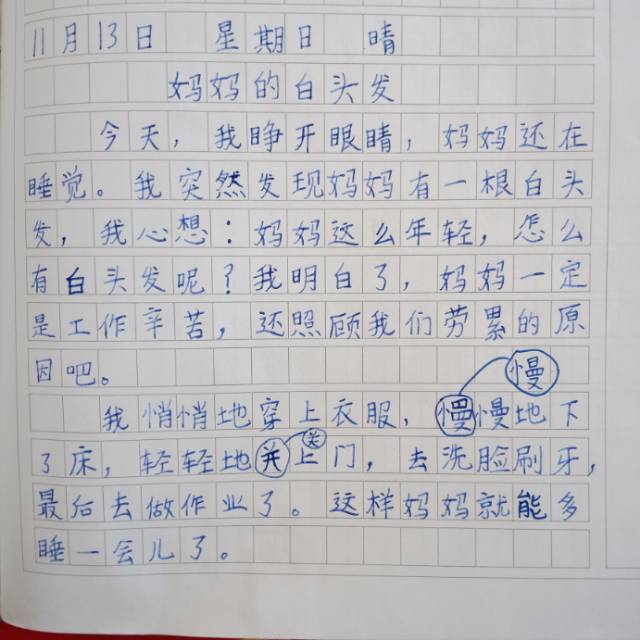 11月13日 星期日 晴
妈妈的白头发
今天，我睁开眼睛，妈妈还在
睡觉。我突然发现妈妈有一根白头
发，我心想：妈妈这么年轻，怎么
有白头发呢？我明白了，妈妈一定
是工作辛苦，还照顾我们劳累的原
因吧。
慢
我悄悄地穿上衣服，慢慢地下
关
了床，轻轻地关上门，去洗脸刷牙，
最后去做作业了。这样妈妈就能多
睡一会儿了。